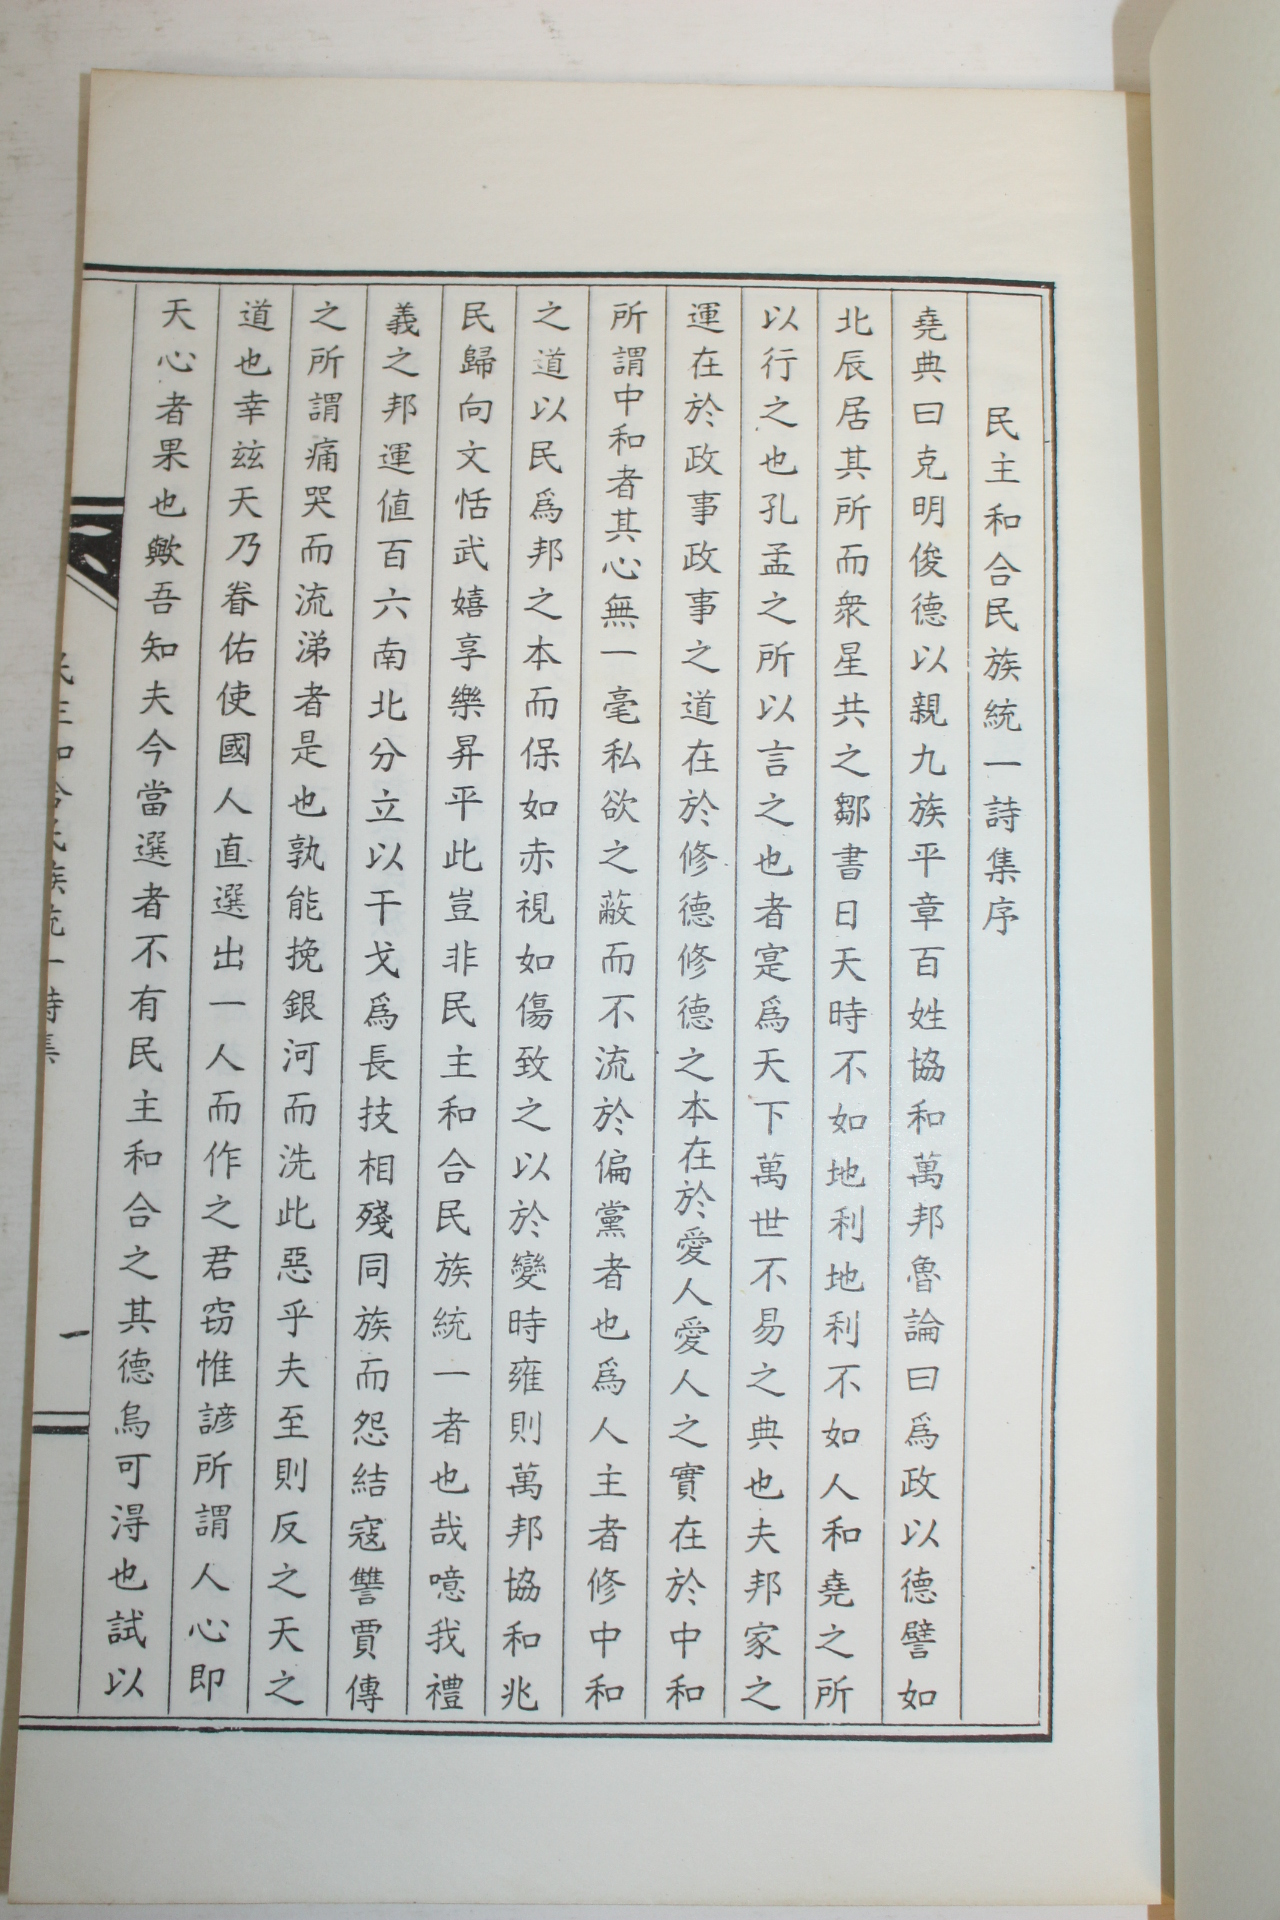 民主和合民族統一詩集序
堯典曰克明俊德以親九族平章百姓協和萬邦魯論曰爲政以德譬如
北辰居其所而衆星共之鄒書曰天時不如地利地利不如人和堯之所
以行之也孔孟之所以言之也者寔爲天下萬世不易之典也夫邦家之
運在於政事政事之道在於修德修德之本在於愛人愛人之實在於中和
所謂中和者其心無一毫私欲之蔽而不流於偏黨者也爲人主者修中和
之道以民爲邦之本而保如赤視如傷致之以於變時雍則萬邦協和兆
民歸向文恬武嬉享樂昇平此豈非民主和合民族統一者也哉噫我禮
義之邦運値百六南北分立以干戈爲長技相殘同族而怨結寇讐賈傳
之所謂痛哭而流涕者是也孰能挽銀河而洗此惡乎夫至則反之天之
道也幸玆天乃眷佑使國人直選出一人而作之君窃惟諺所謂人心即
天心者果也歟吾知夫今當選者不有民主和合之其德烏可淂也試以
民主和合民族統一詩集
一